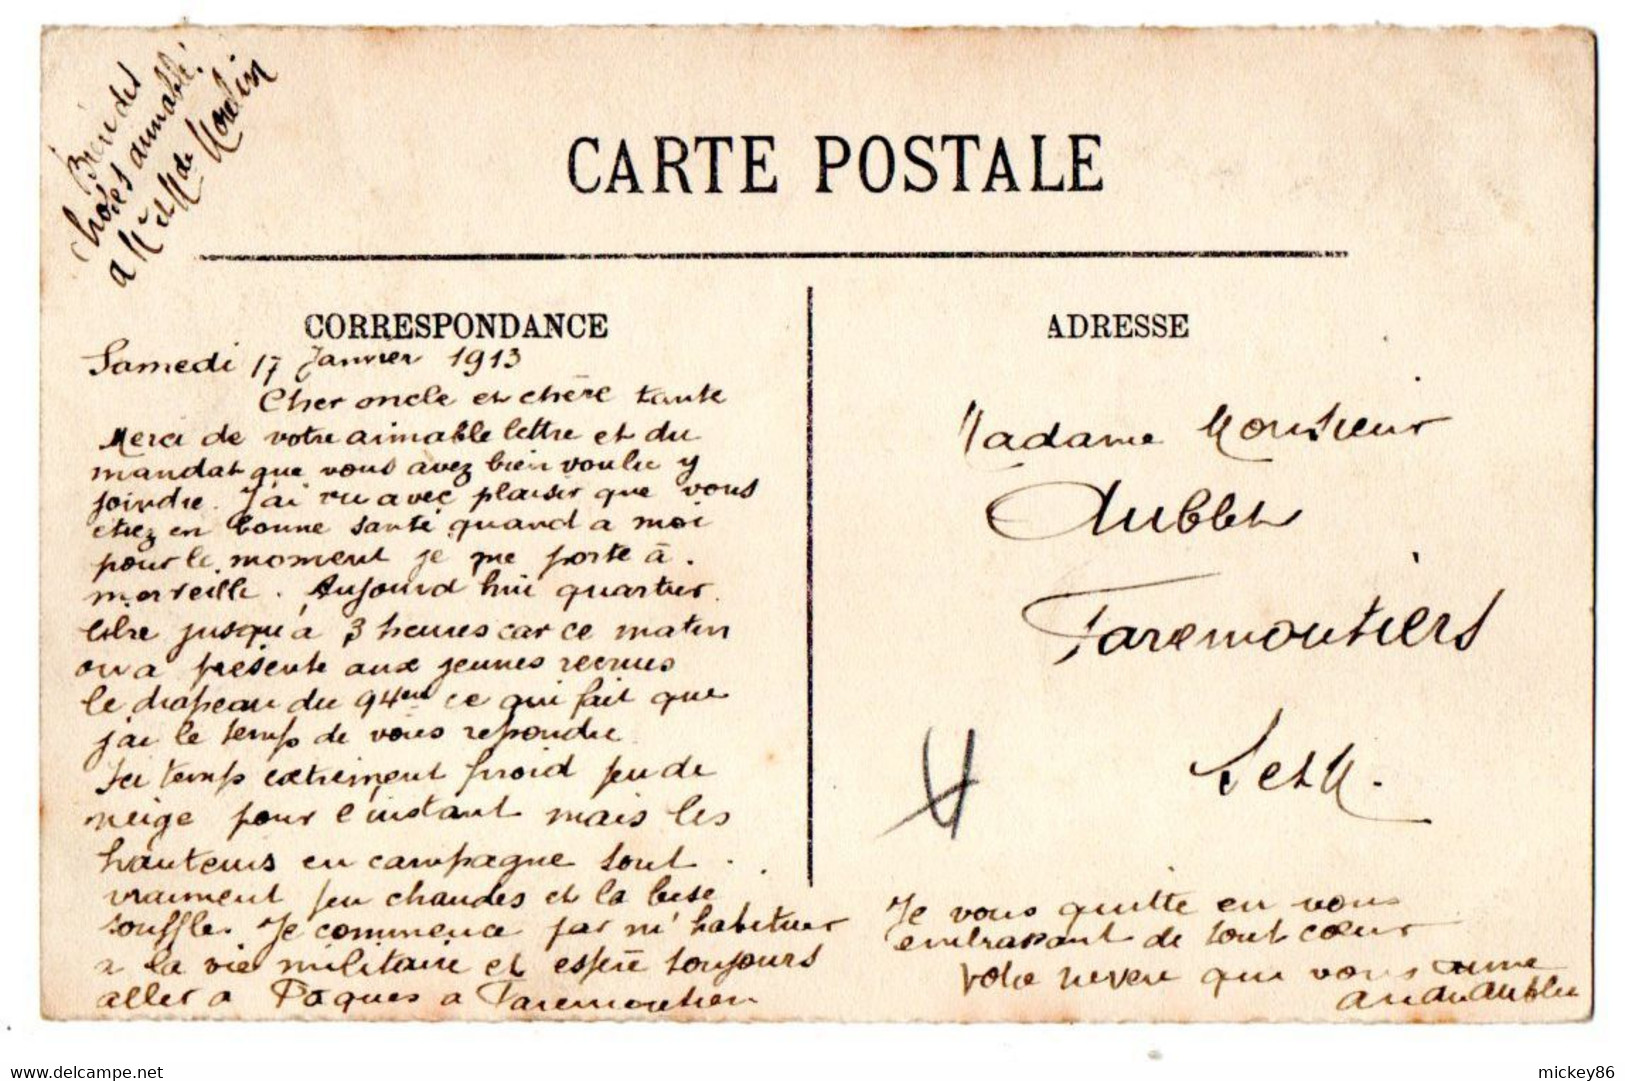 Bien des
choses aimable.
a Mr et Mde Moulin
CARTE POSTALE
CORRESPONDANCE
Samedi 17 Janvier 1913
Cher oncle et chère tante
Merci de votre aimable lettre et du
mandat que vous avez bien voulu y
joindre. J'ai vu avec plaisir que vous
etiez en bonne santé quand a moi
pour le moment je me porte à
merveille. Aujourd hui quartier
libre jusqu'a 3 heures car ce matin
on a présente aux jeunes recrues
le drapeau du 94em ce qui fait que
j'ai le temps de vous repondre
Ici temps extremement froid peu de
neige pour l'instant mais les
hauteurs en campagne sont
vraiment peu chaudes et la bise
souffle. Je commence par m'habituer
a la vie militaire et espère toujours
aller a Pâques a Faremoutiers
ADRESSE
Madame Monsieur
Aublet
Faremoutiers
Set M.
Je vous quitte en vous
embrassant de tout coeur
Votre neveu qui vous aime
André Aublet
delcampe.net
mickey86